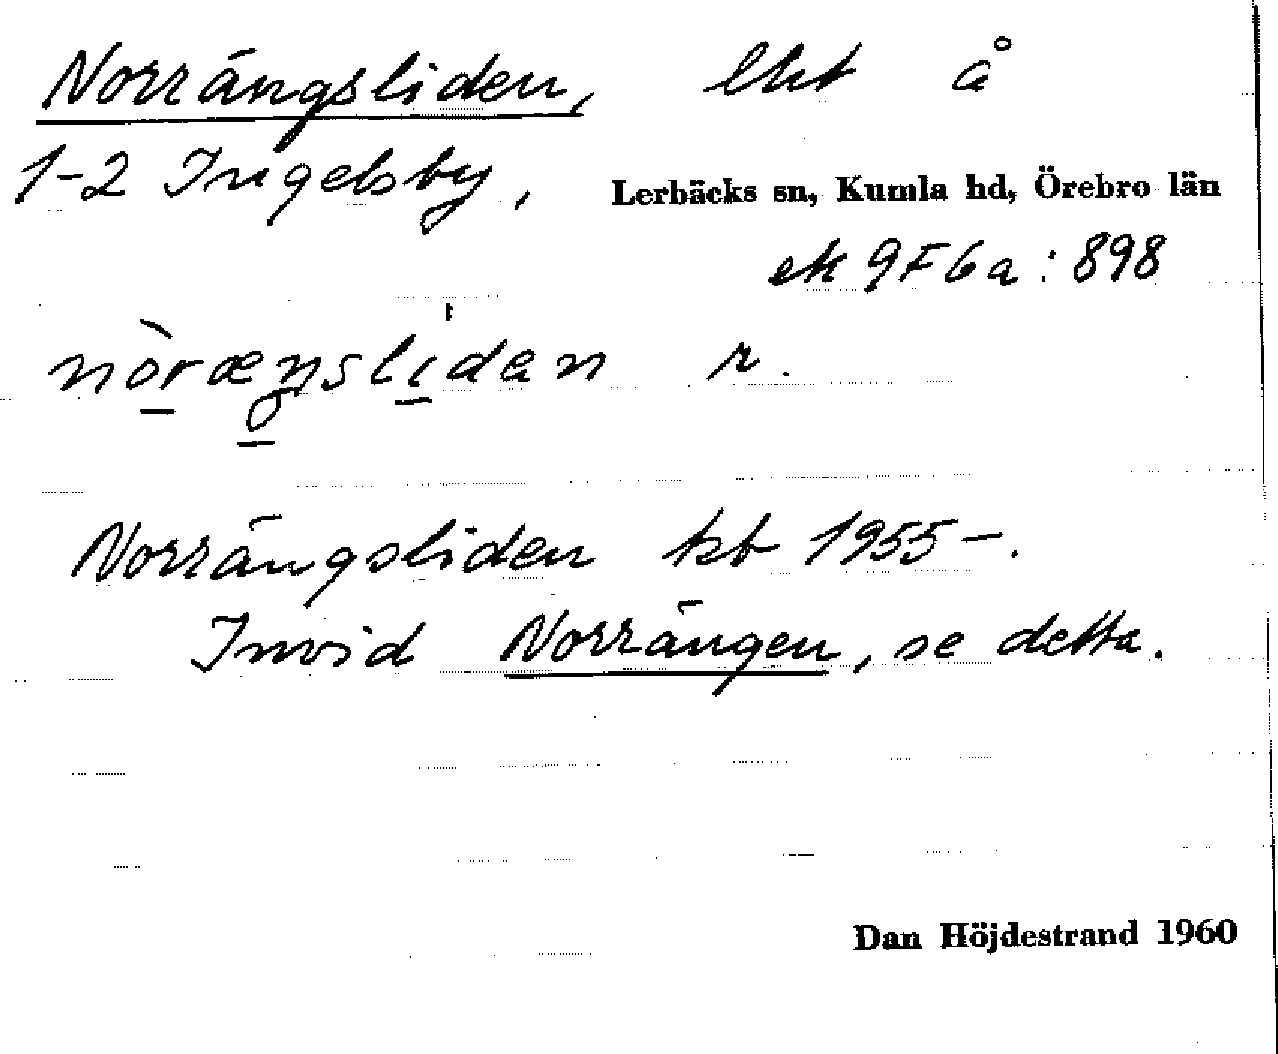 Norrängsliden, lht å
1-2 Ingelsby, Lerbäcks sn, Kumla hd, Örebro län
ek 9F6a:898
nòræŋslidan r.
Norrängsliden kb 1955-.
Invid Norrängen, se detta.
Dan Höjdestrand 1960